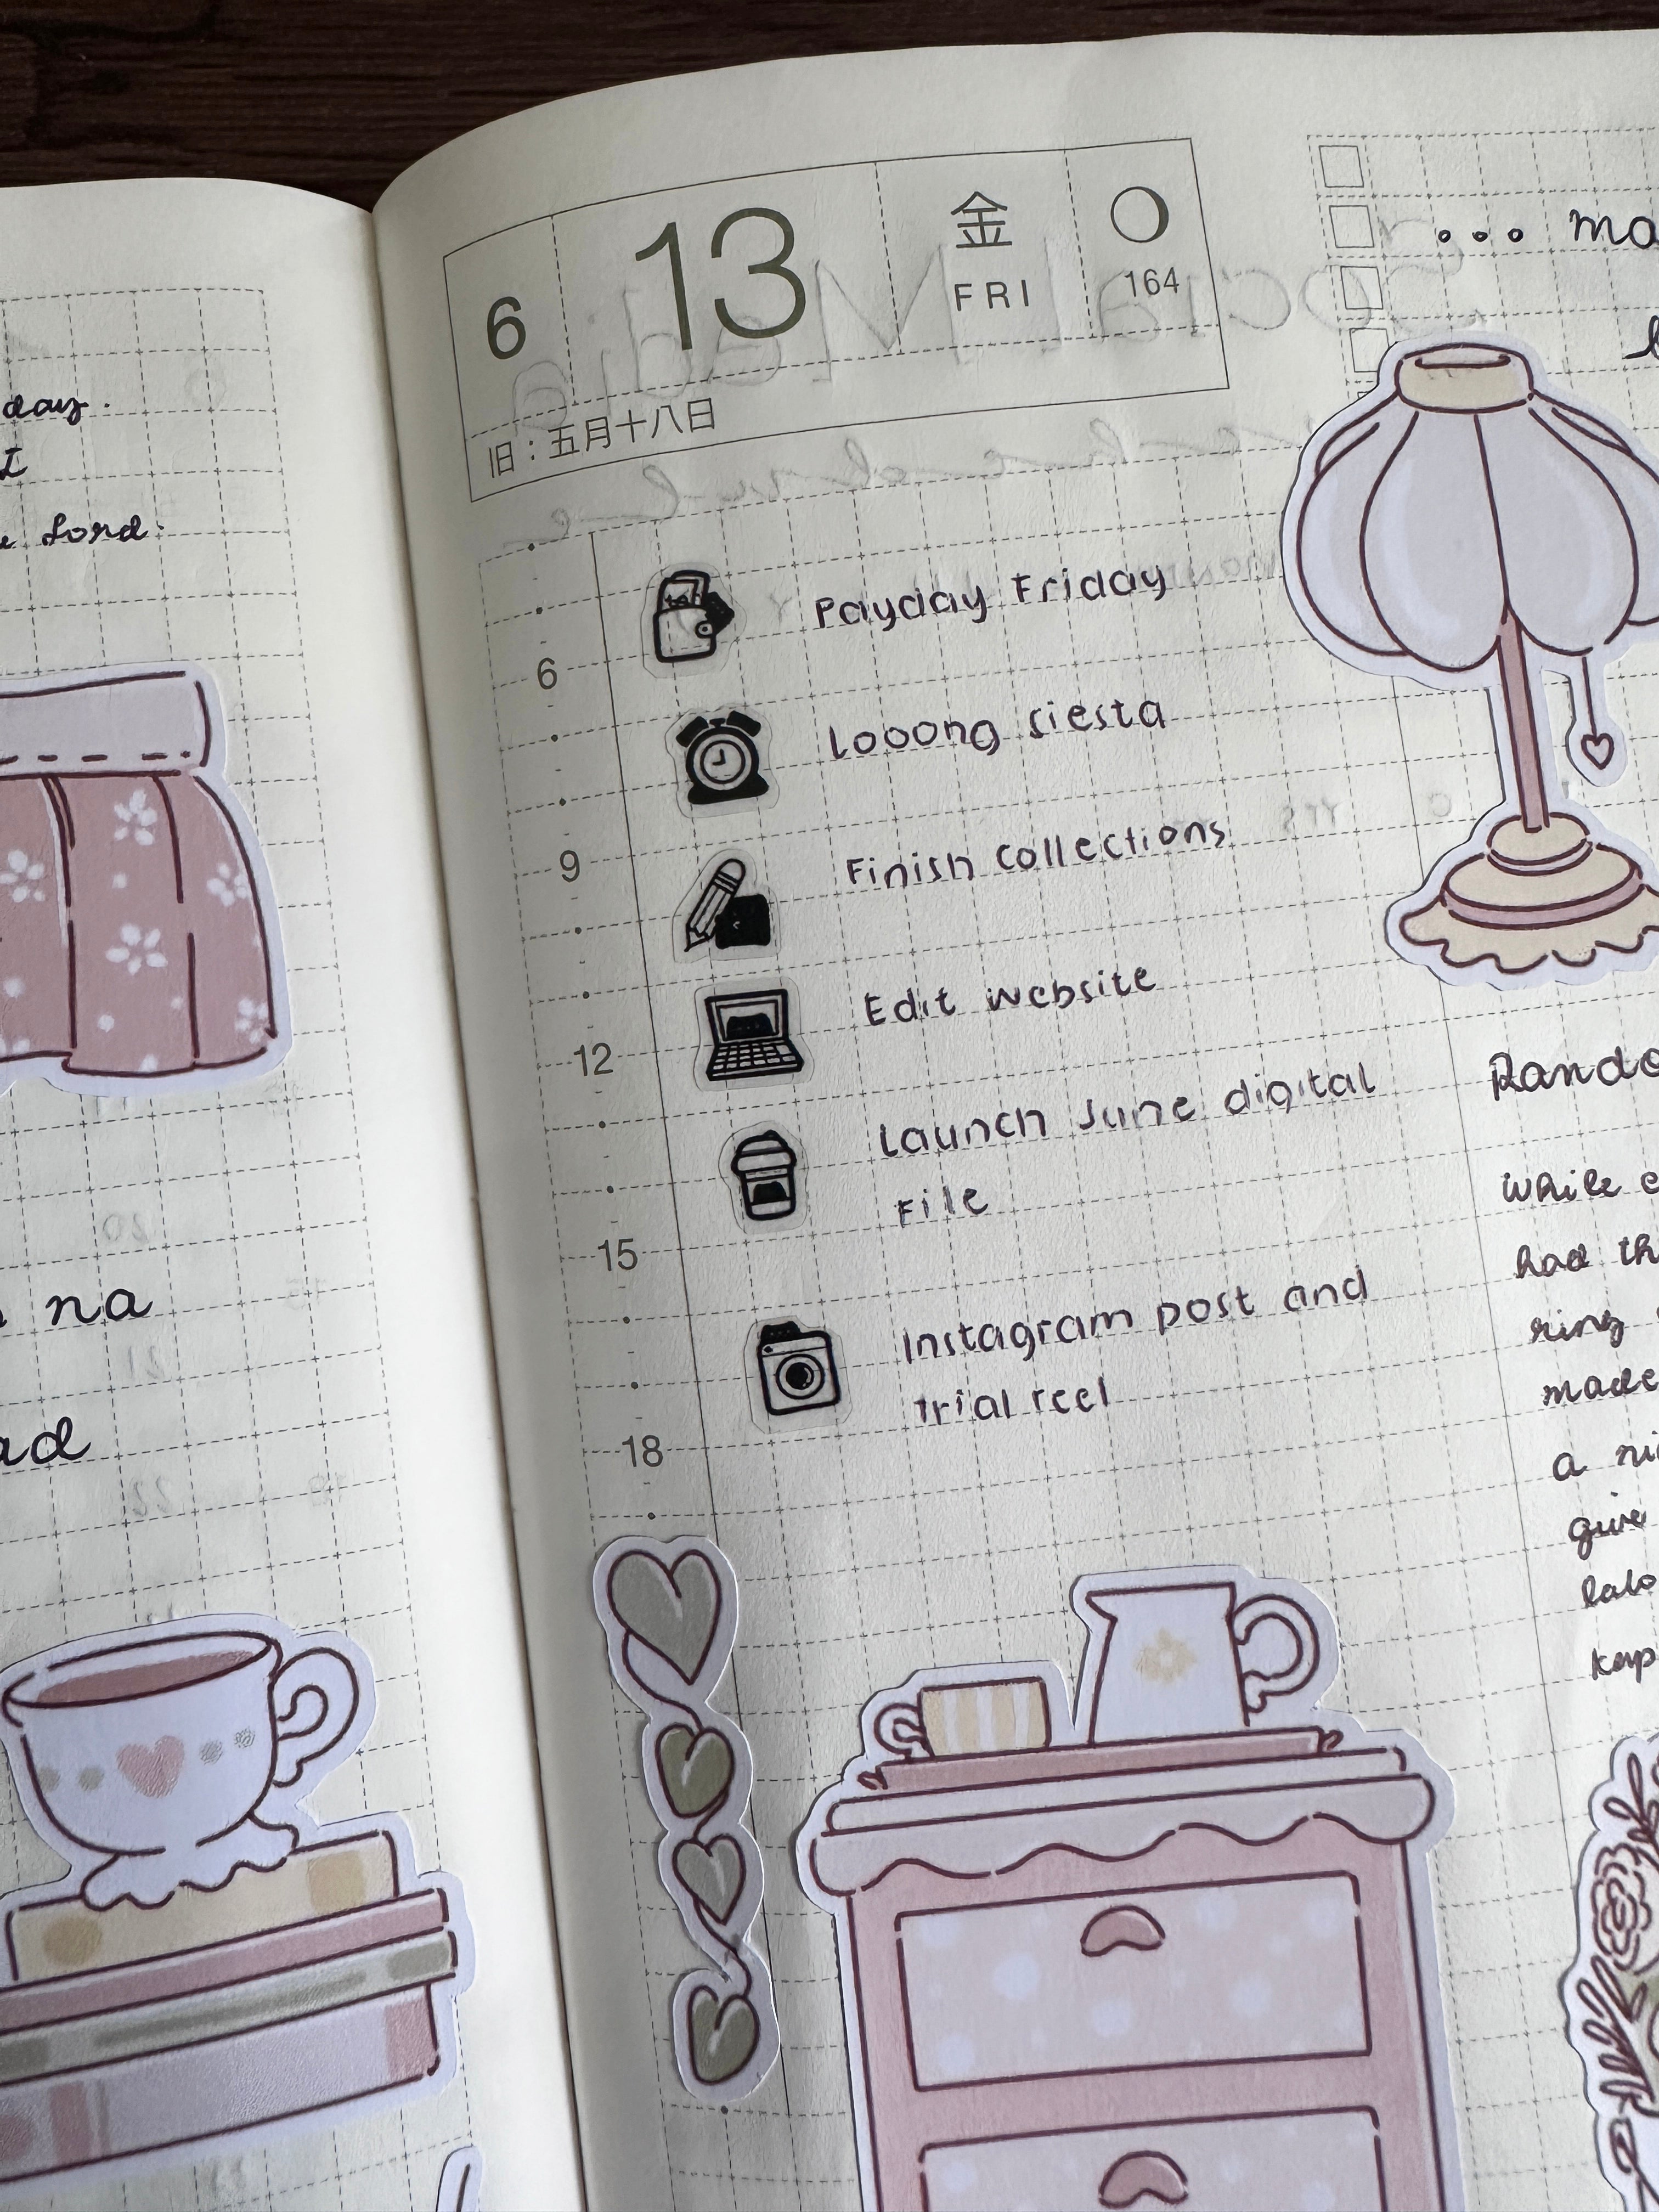 day.
I
Lord.
na
6
13
金
FRI
164
旧：五月十八日
... ma
Payday Friday
6
Looong siesta
9
Finish collections
Edit website
12
Launch June digital
File
15
Instagram post and
Trial reel
18
While
had
ring
made
a
give